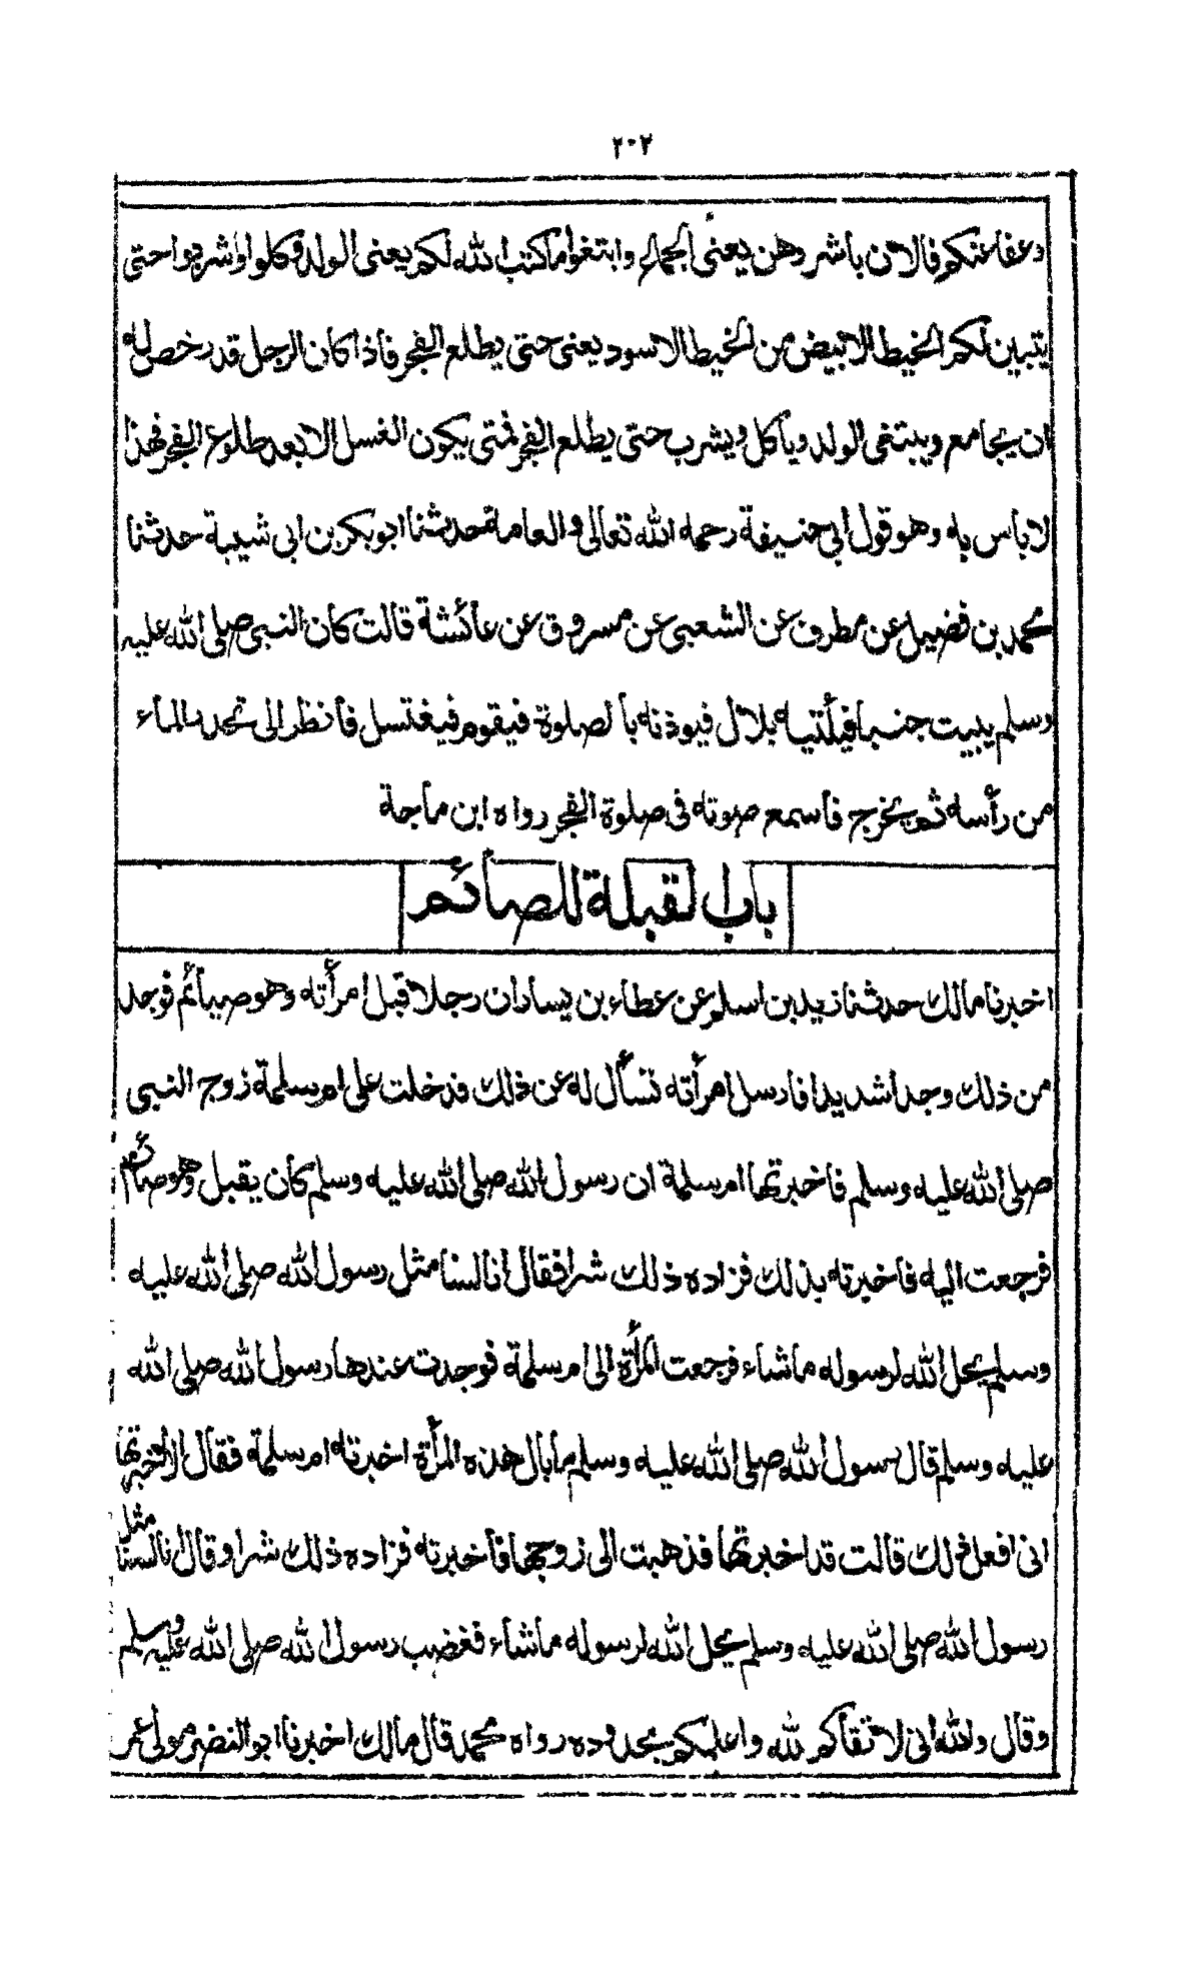 ٢٠٢
وعفا عنكم فالان باشروهن يعنى الجماع وابتغوا ما كتب الله لكم يعنى الولد وكلوا واشربوا حتى
يتبين لكم الخيط الابيض من الخيط الاسود يعنى حتى يطلع الفجر فاذا كان الرجل قد رخص له
ان يجامع ويبتغى الولد وياكل ويشرب حتى يطلع الفجر فمتى يكون الغسل الا بعد طلوع الفجر فهذا
لا باس به وهو قول ابى حنيفة رحمه الله تعالى والعامة حدثنا ابو بكر بن ابى شيبة حدثنا
محمد بن فضيل عن مطرف عن الشعبى عن مسروق عن عائشة قالت كان النبى صلى الله عليه
وسلم يبيت جنبا فيأتيه بلال فيوذنه بالصلوة فيقوم فيغتسل فانظر الى تحدر الماء
من رأسه ثم يخرج فاسمع صوته فى صلوة الفجر رواه ابن ماجة
باب القبلة للصائم
اخبرنا مالك حدثنا زيد بن اسلم عن عطاء بن يسار ان رجلا قبل امرأته وهو صائم فوجد
من ذلك وجدا شديدا فارسل امرأته تسأل له عن ذلك فدخلت على ام سلمة زوج النبى
صلى الله عليه وسلم فاخبرتها ام سلمة ان رسول الله صلى الله عليه وسلم كان يقبل وهو صائم
فرجعت اليه فاخبرته بذلك فزاده ذلك شرا فقال انا لسنا مثل رسول الله صلى الله عليه
وسلم يحل الله لرسوله ما شاء فرجعت المرأة الى ام سلمة فوجدت عندها رسول الله صلى الله
عليه وسلم قال رسول الله صلى الله عليه وسلم ما بال هذه المرأة اخبرته ام سلمة فقال الا اخبرتها
انى افعل ذلك قالت قد اخبرتها فذهبت الى زوجها فاخبرته فزاده ذلك شرا وقال انا لسنا مثل
رسول الله صلى الله عليه وسلم يحل الله لرسوله ما شاء فغضب رسول الله صلى الله عليه وسلم
وقال والله انى لاتقاكم لله واعلمكم بحدوده رواه محمد قال مالك اخبرنا ابو النضر مولى عمر